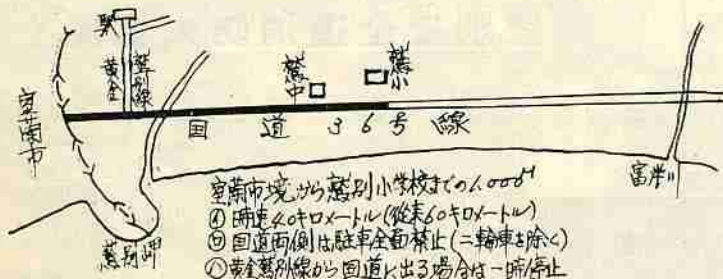 駅
黄金鷲別線
鷲中
鷲小
室蘭市
国道36号線
富岸川
鷲別岬
室蘭市境から鷲別小学校までの1,000M
㋑時速40キロメートル(従来60キロメートル)
㋺国道両側は駐車全面禁止(二輪車を除く)
㋩黄金鷲別線から国道に出る場合は一時停止